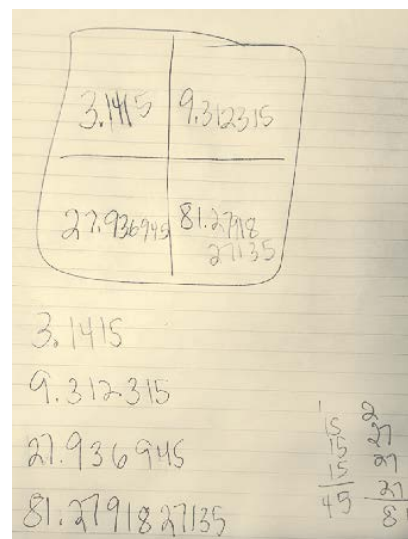 3.1415 9.312315
27.936945 81.27918
27135
3.1415
9.312315
27.936945
81.2791827135
1 2
15 27
15 27
15 27
45 81